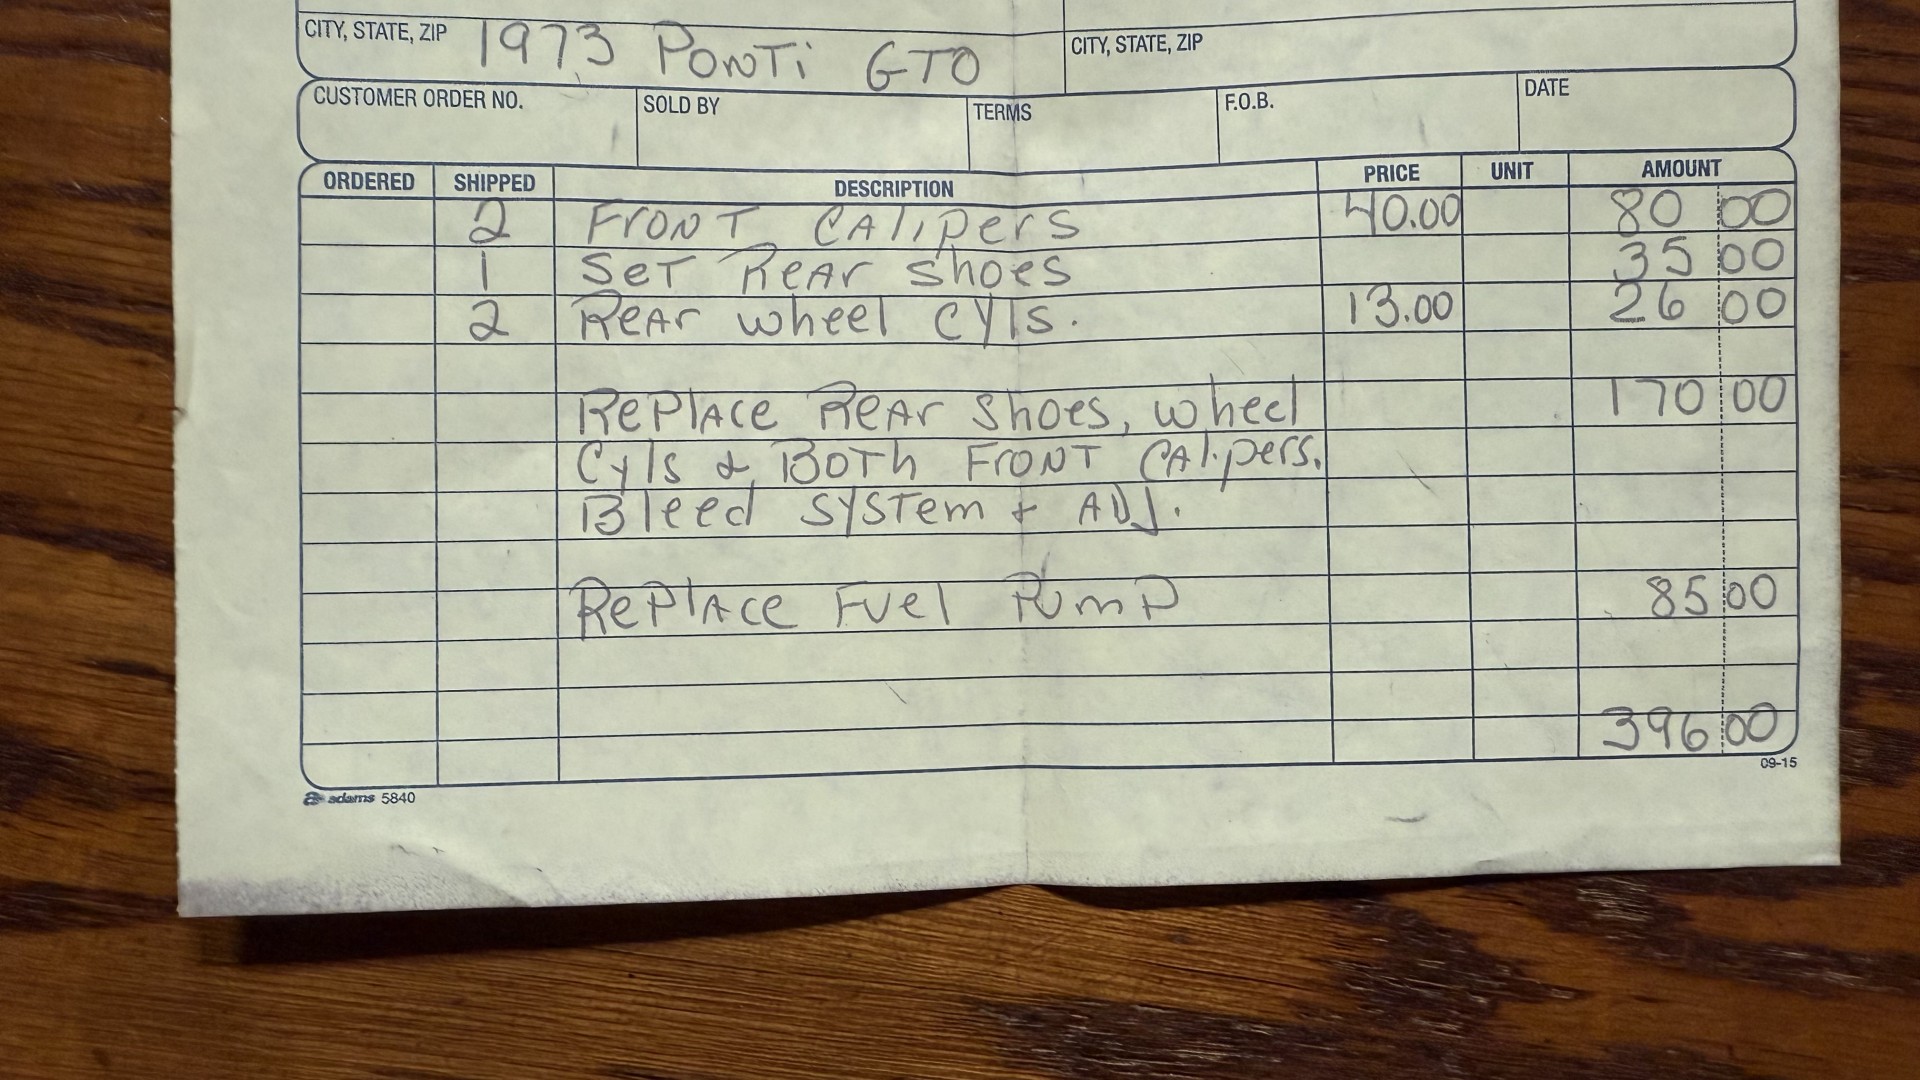 CITY, STATE, ZIP 1973 Ponti GTO CITY, STATE, ZIP
CUSTOMER ORDER NO. SOLD BY TERMS F.O.B. DATE
ORDERED SHIPPED DESCRIPTION PRICE UNIT AMOUNT
2 Front Calipers 40.00 80 00
1 Set Rear Shoes 35 00
2 Rear wheel Cyls. 13.00 26 00
Replace Rear Shoes, wheel 170 00
Cyls & Both Front Calipers.
Bleed system + ADJ.
Replace Fuel Pump 85 00
396 00
adams 5840 09-15